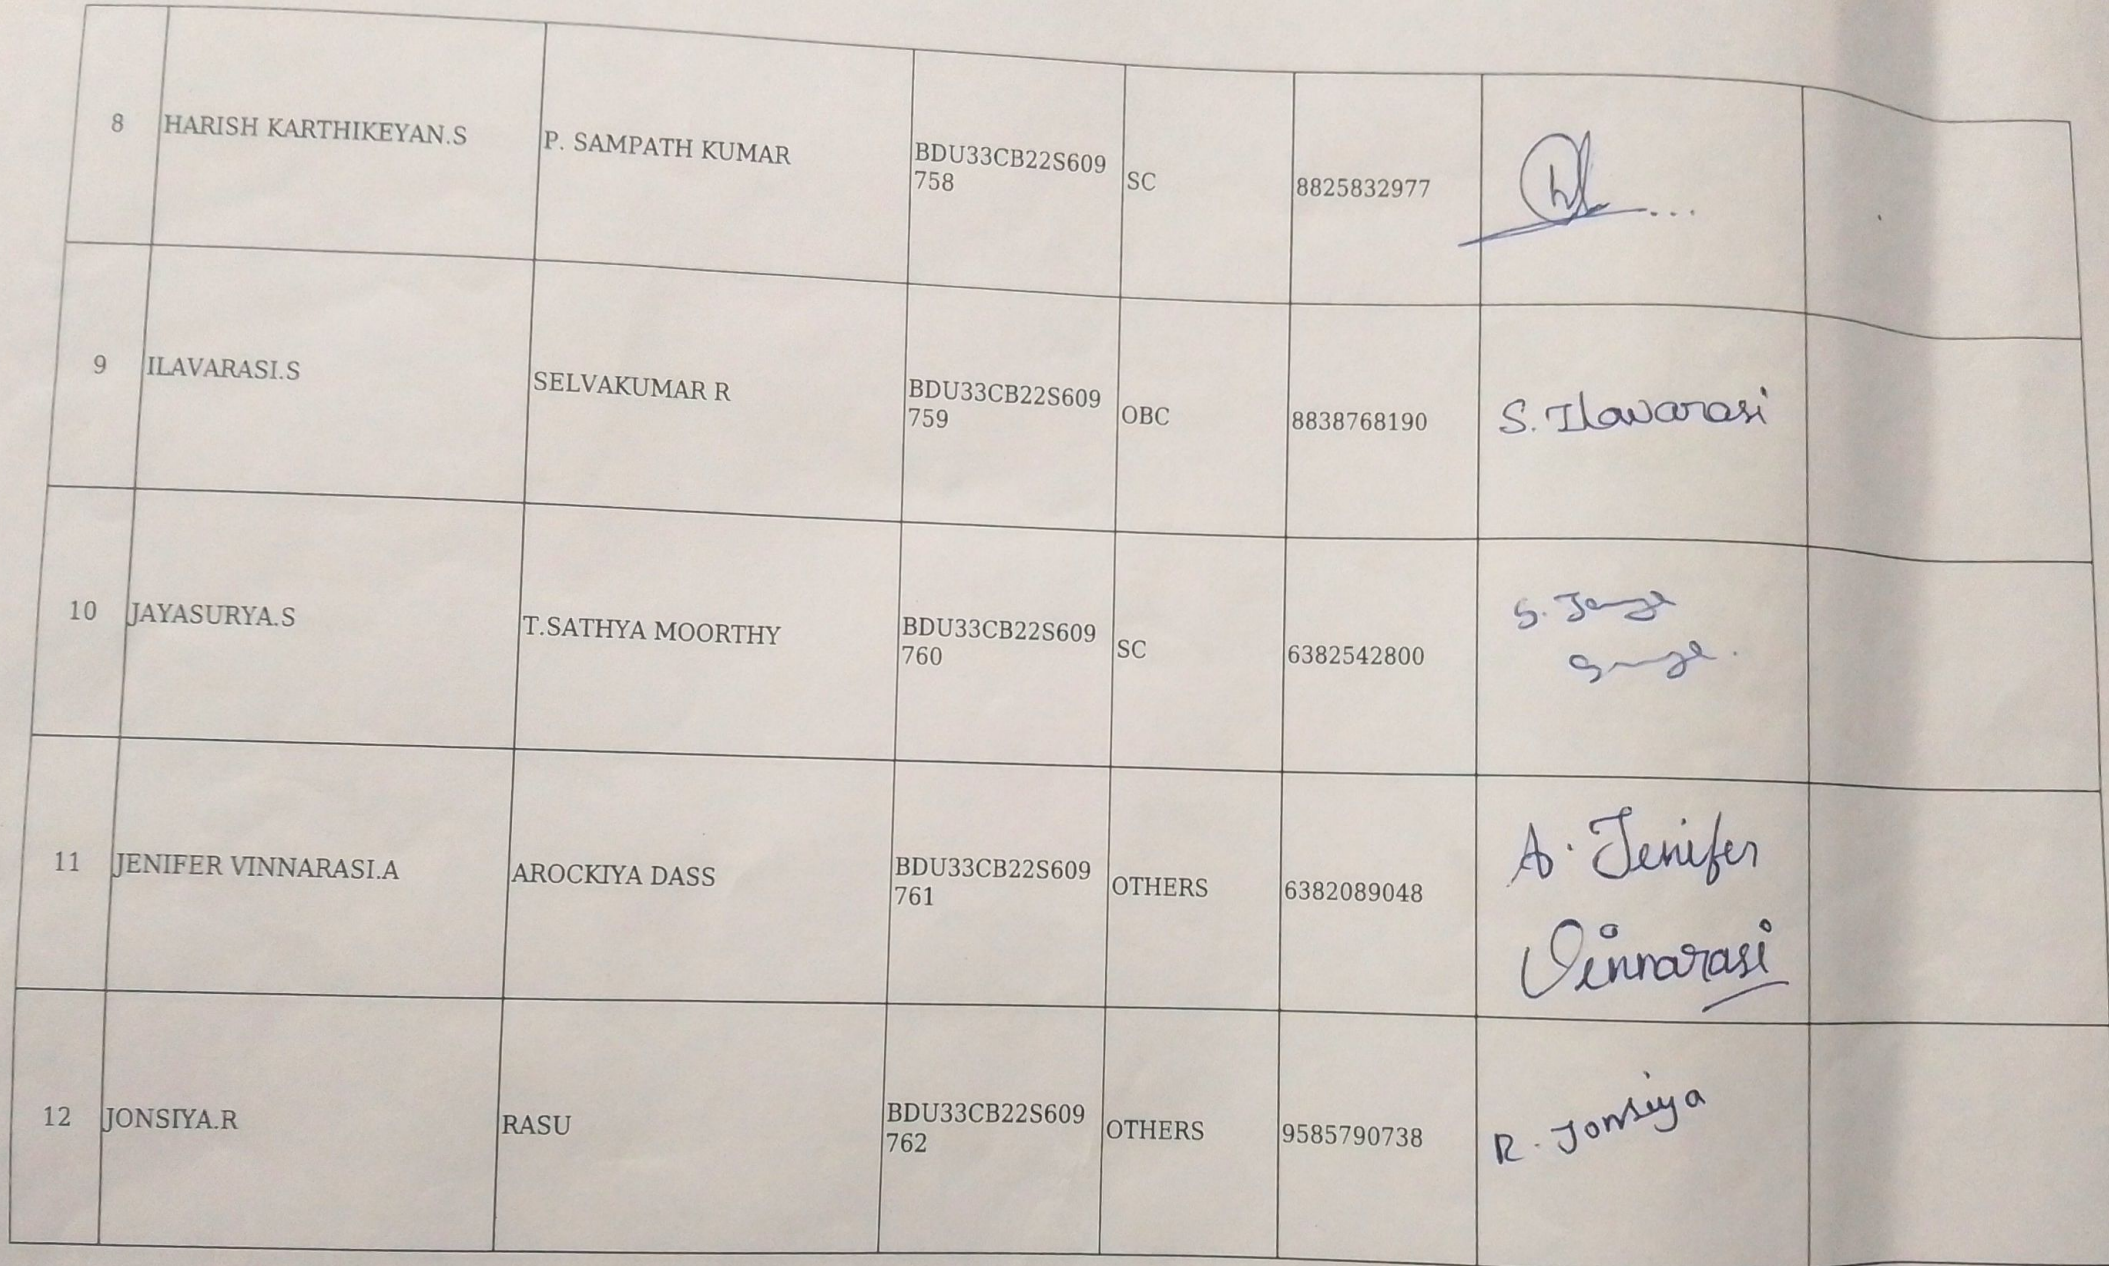 8 HARISH KARTHIKEYAN.S P. SAMPATH KUMAR BDU33CB22S609 SC 8825832977
758
9 ILAVARASI.S SELVAKUMAR R BDU33CB22S609 OBC 8838768190 S. Ilavarasi
759
10 JAYASURYA.S T.SATHYA MOORTHY BDU33CB22S609 SC 6382542800 S.
760
11 JENIFER VINNARASI.A AROCKIYA DASS BDU33CB22S609 OTHERS 6382089048 A. Jenifer
761 Vinnarasi
12 JONSIYA.R RASU BDU33CB22S609 OTHERS 9585790738 R. Jonsiya
762